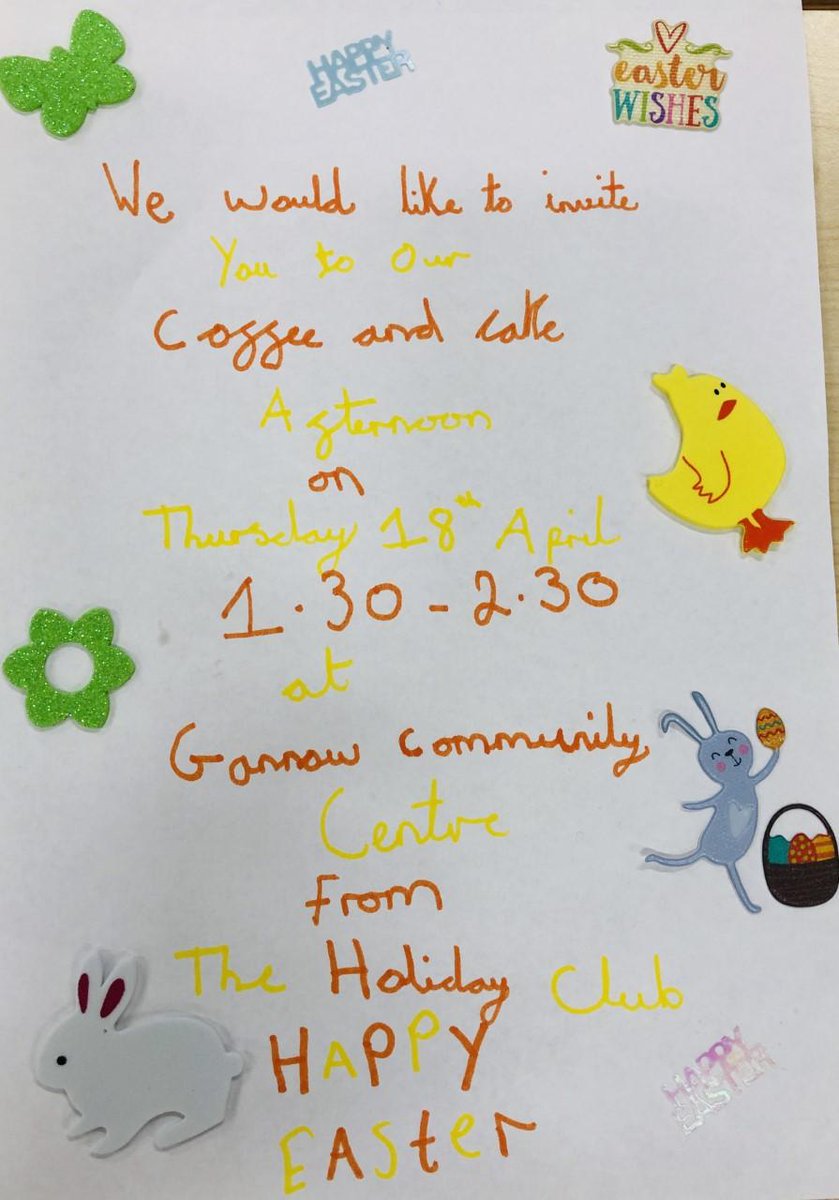 HAPPY
EASTER
easter
WISHES
We would like to invite
You to our
Coffee and cake
Afternoon
on
Thursday 18th April
1.30 - 2.30
at
Gannow Community
Centre
From
The Holiday Club
HAPPY
EASter
HAPPY
EASTER